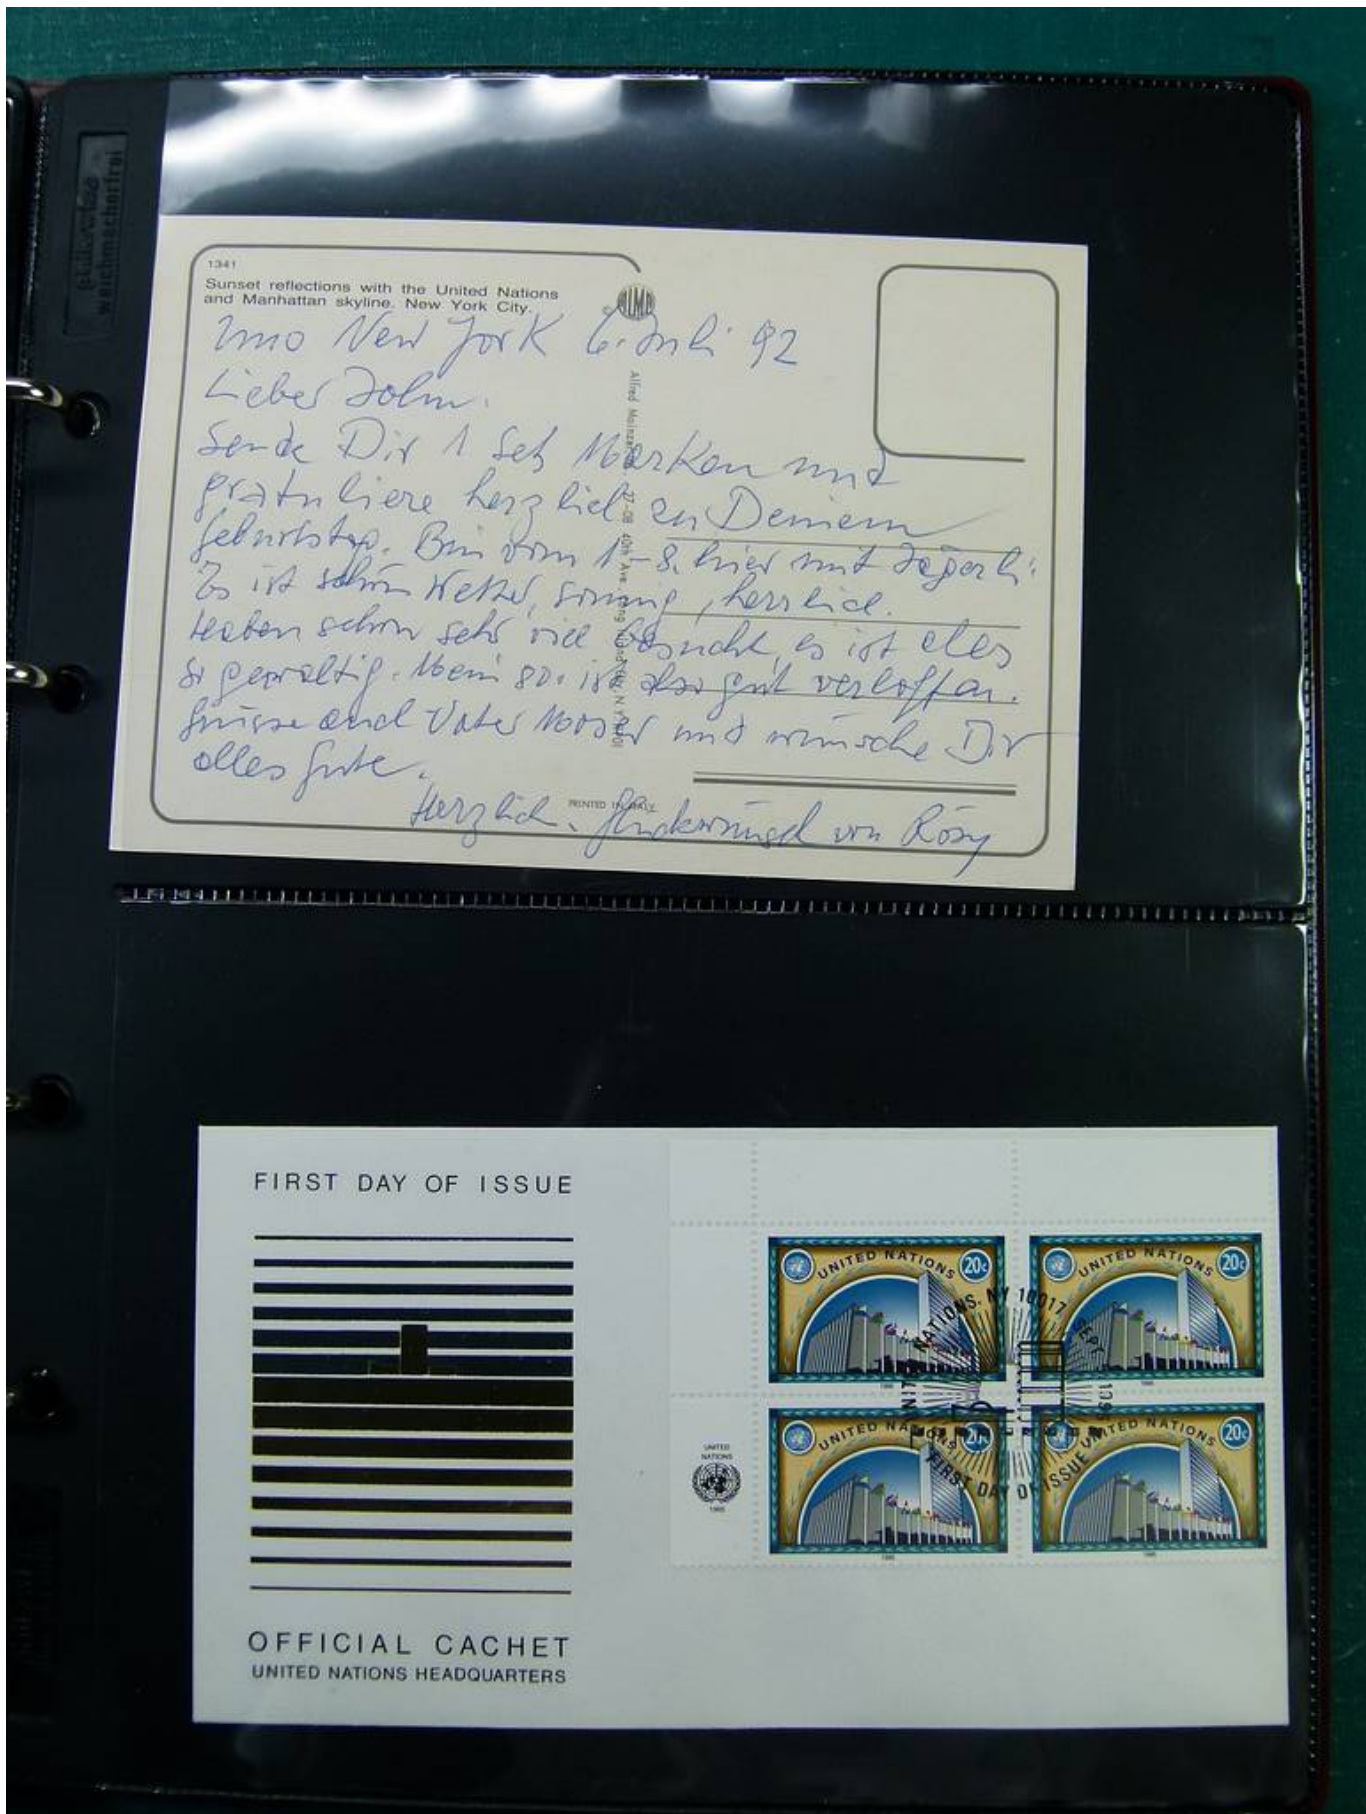 philotax
weichmacherfrei
1341
Sunset reflections with the United Nations
and Manhattan skyline. New York City.
Uno New York 6. Juli 92
Lieber John.
Sende Dir 1 Set Marken und
gratuliere herzlich zu Deinem
Geburtstag. Bin vom 1-8. hier mit
Es ist schön Wetter, sonnig, herrlich.
Haben schon sehr viel besucht, es ist alles
so gewaltig. Mein 80. ist also gut verloffen.
Grüsse auch Vater Moser und wünsche Dir
alles Gute.
Herzlich. Glückwunsch von Rösy
Alfred Mainzer
PRINTED IN ITALY
FIRST DAY OF ISSUE
OFFICIAL CACHET
UNITED NATIONS HEADQUARTERS
UNITED NATIONS 20c
1995
UNITED NATIONS 20c
1995
UNITED NATIONS 20c
1995
UNITED NATIONS 20c
1995
UNITED
NATIONS
1995
UNITED NATIONS, NY 10017
FIRST DAY OF ISSUE